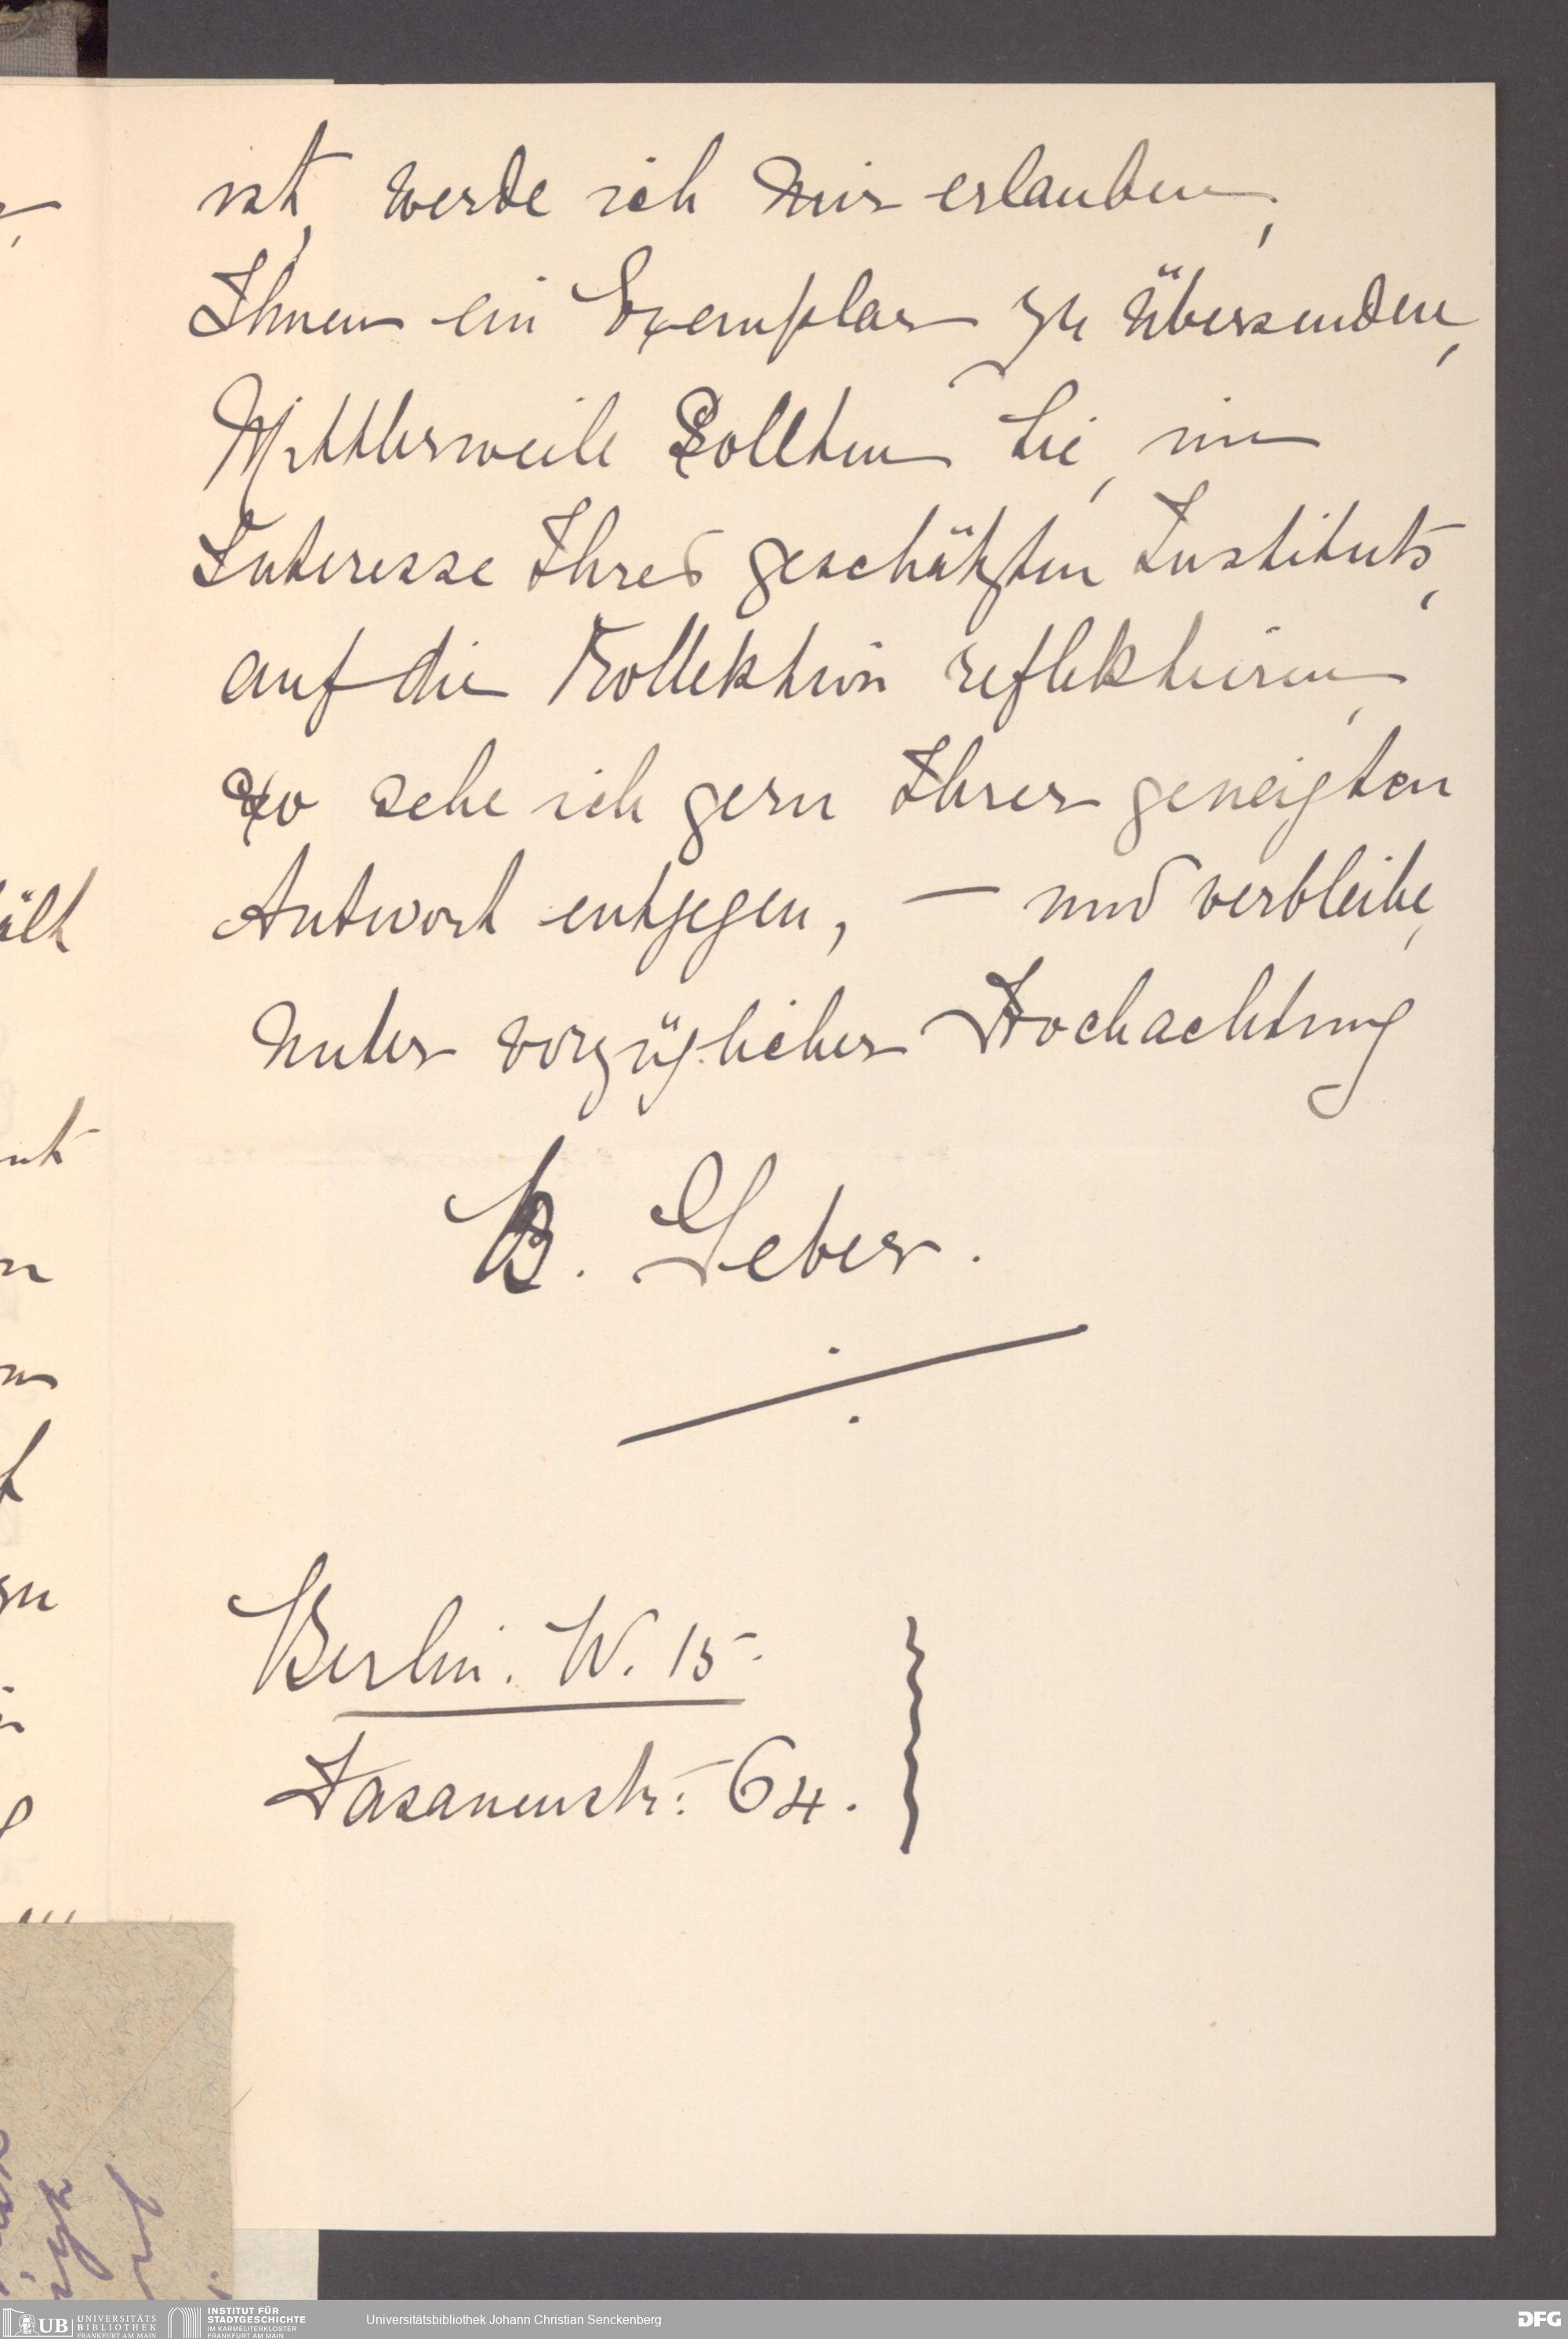 ist, werde ich mir erlauben,
Ihnen ein Exemplar zu übersenden,
Mittlerweile sollten Sie, im
Interesse Ihres geschätzten Instituts,
auf die Kollektion reflektieren,
so sehe ich gern Ihrer geneigten
Antwort entgegen, — und verbleibe,
unter vorzüglicher Hochachtung
B. Geber.
Berlin. W. 15.
Fasanenstr: 64.
ält
UB UNIVERSITÄTS BIBLIOTHEK FRANKFURT AM MAIN
INSTITUT FÜR STADTGESCHICHTE IM KARMELITERKLOSTER FRANKFURT AM MAIN
Universitätsbibliothek Johann Christian Senckenberg
DFG